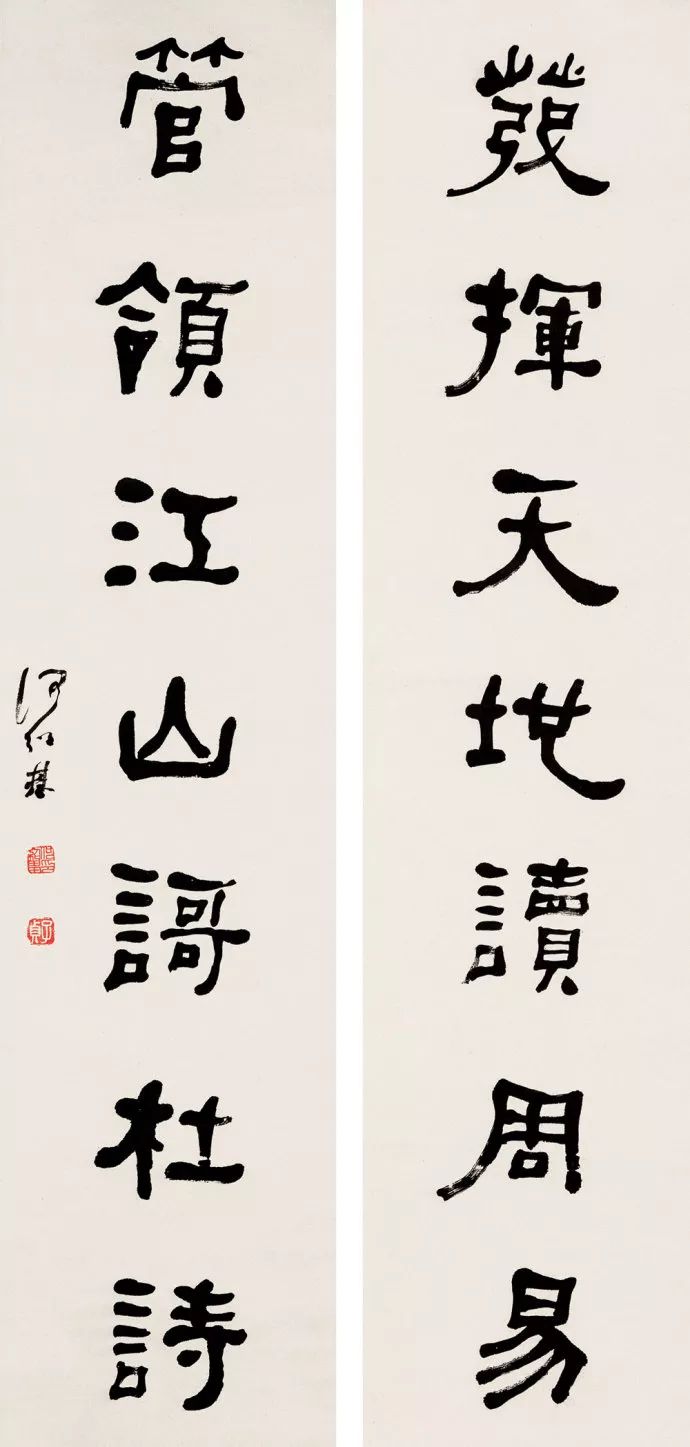 發揮天地讀周易
管領江山謌杜詩
何紹基
子貞